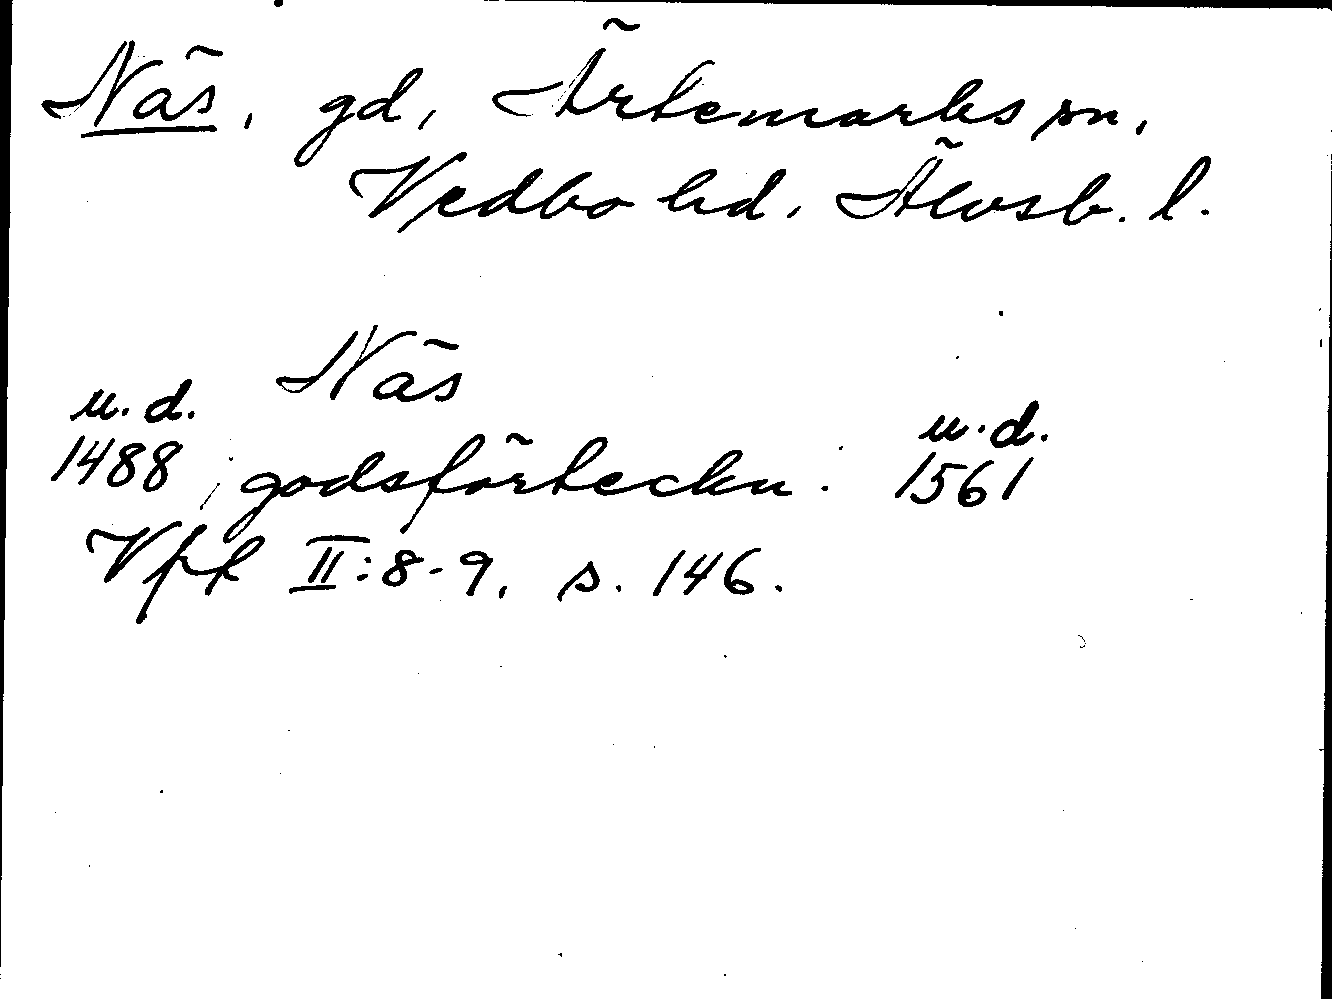 Näs, gd, Ärtemarks sn,
Vedbo hd, Älvsb. l.
Näs
u.d. u.d.
1488, godsförteckn. 1561
Vfl II:8-9, s. 146.